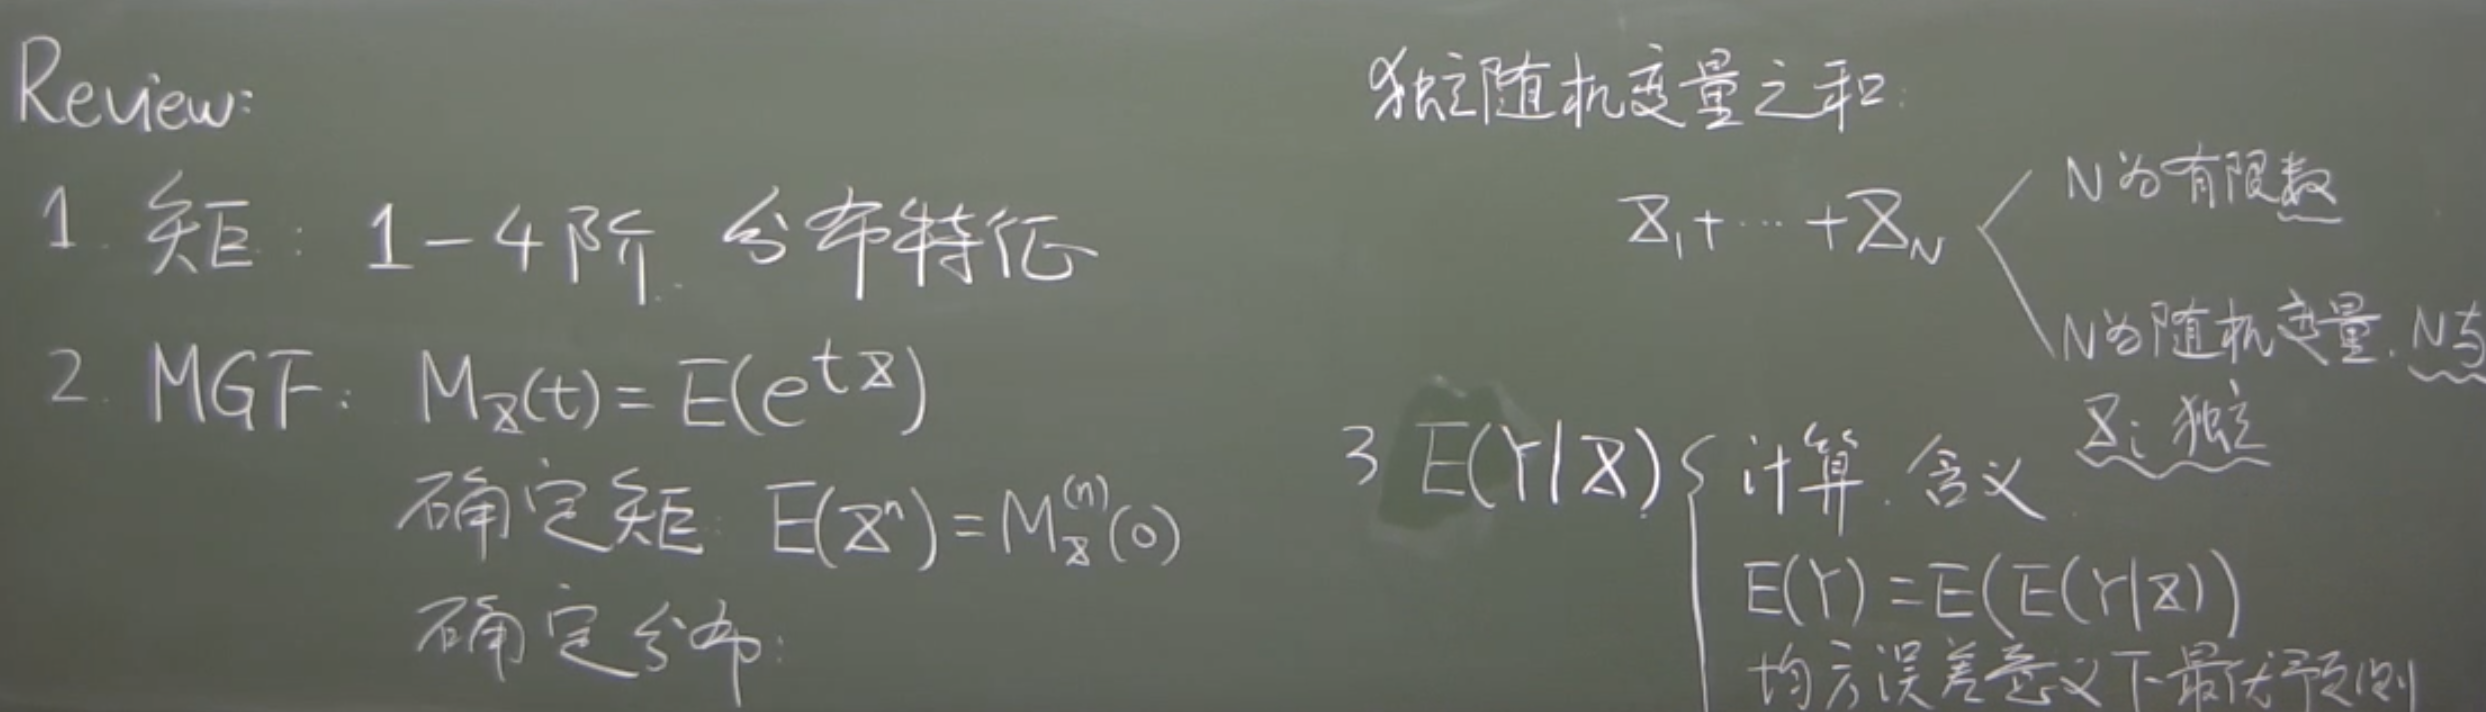 Review:
1. 矩: 1-4阶. 分布特征
2. MGF: M_X(t) = E(e^{tX})
确定矩: E(X^n) = M_X^{(n)}(0)
确定分布:
独立随机变量之和:
X_1 + … + X_N
N为有限数
N为随机变量. N与
X_i 独立
3 E(Y|X) { 计算. 含义.
E(Y) = E(E(Y|X))
均方误差意义下最优预测